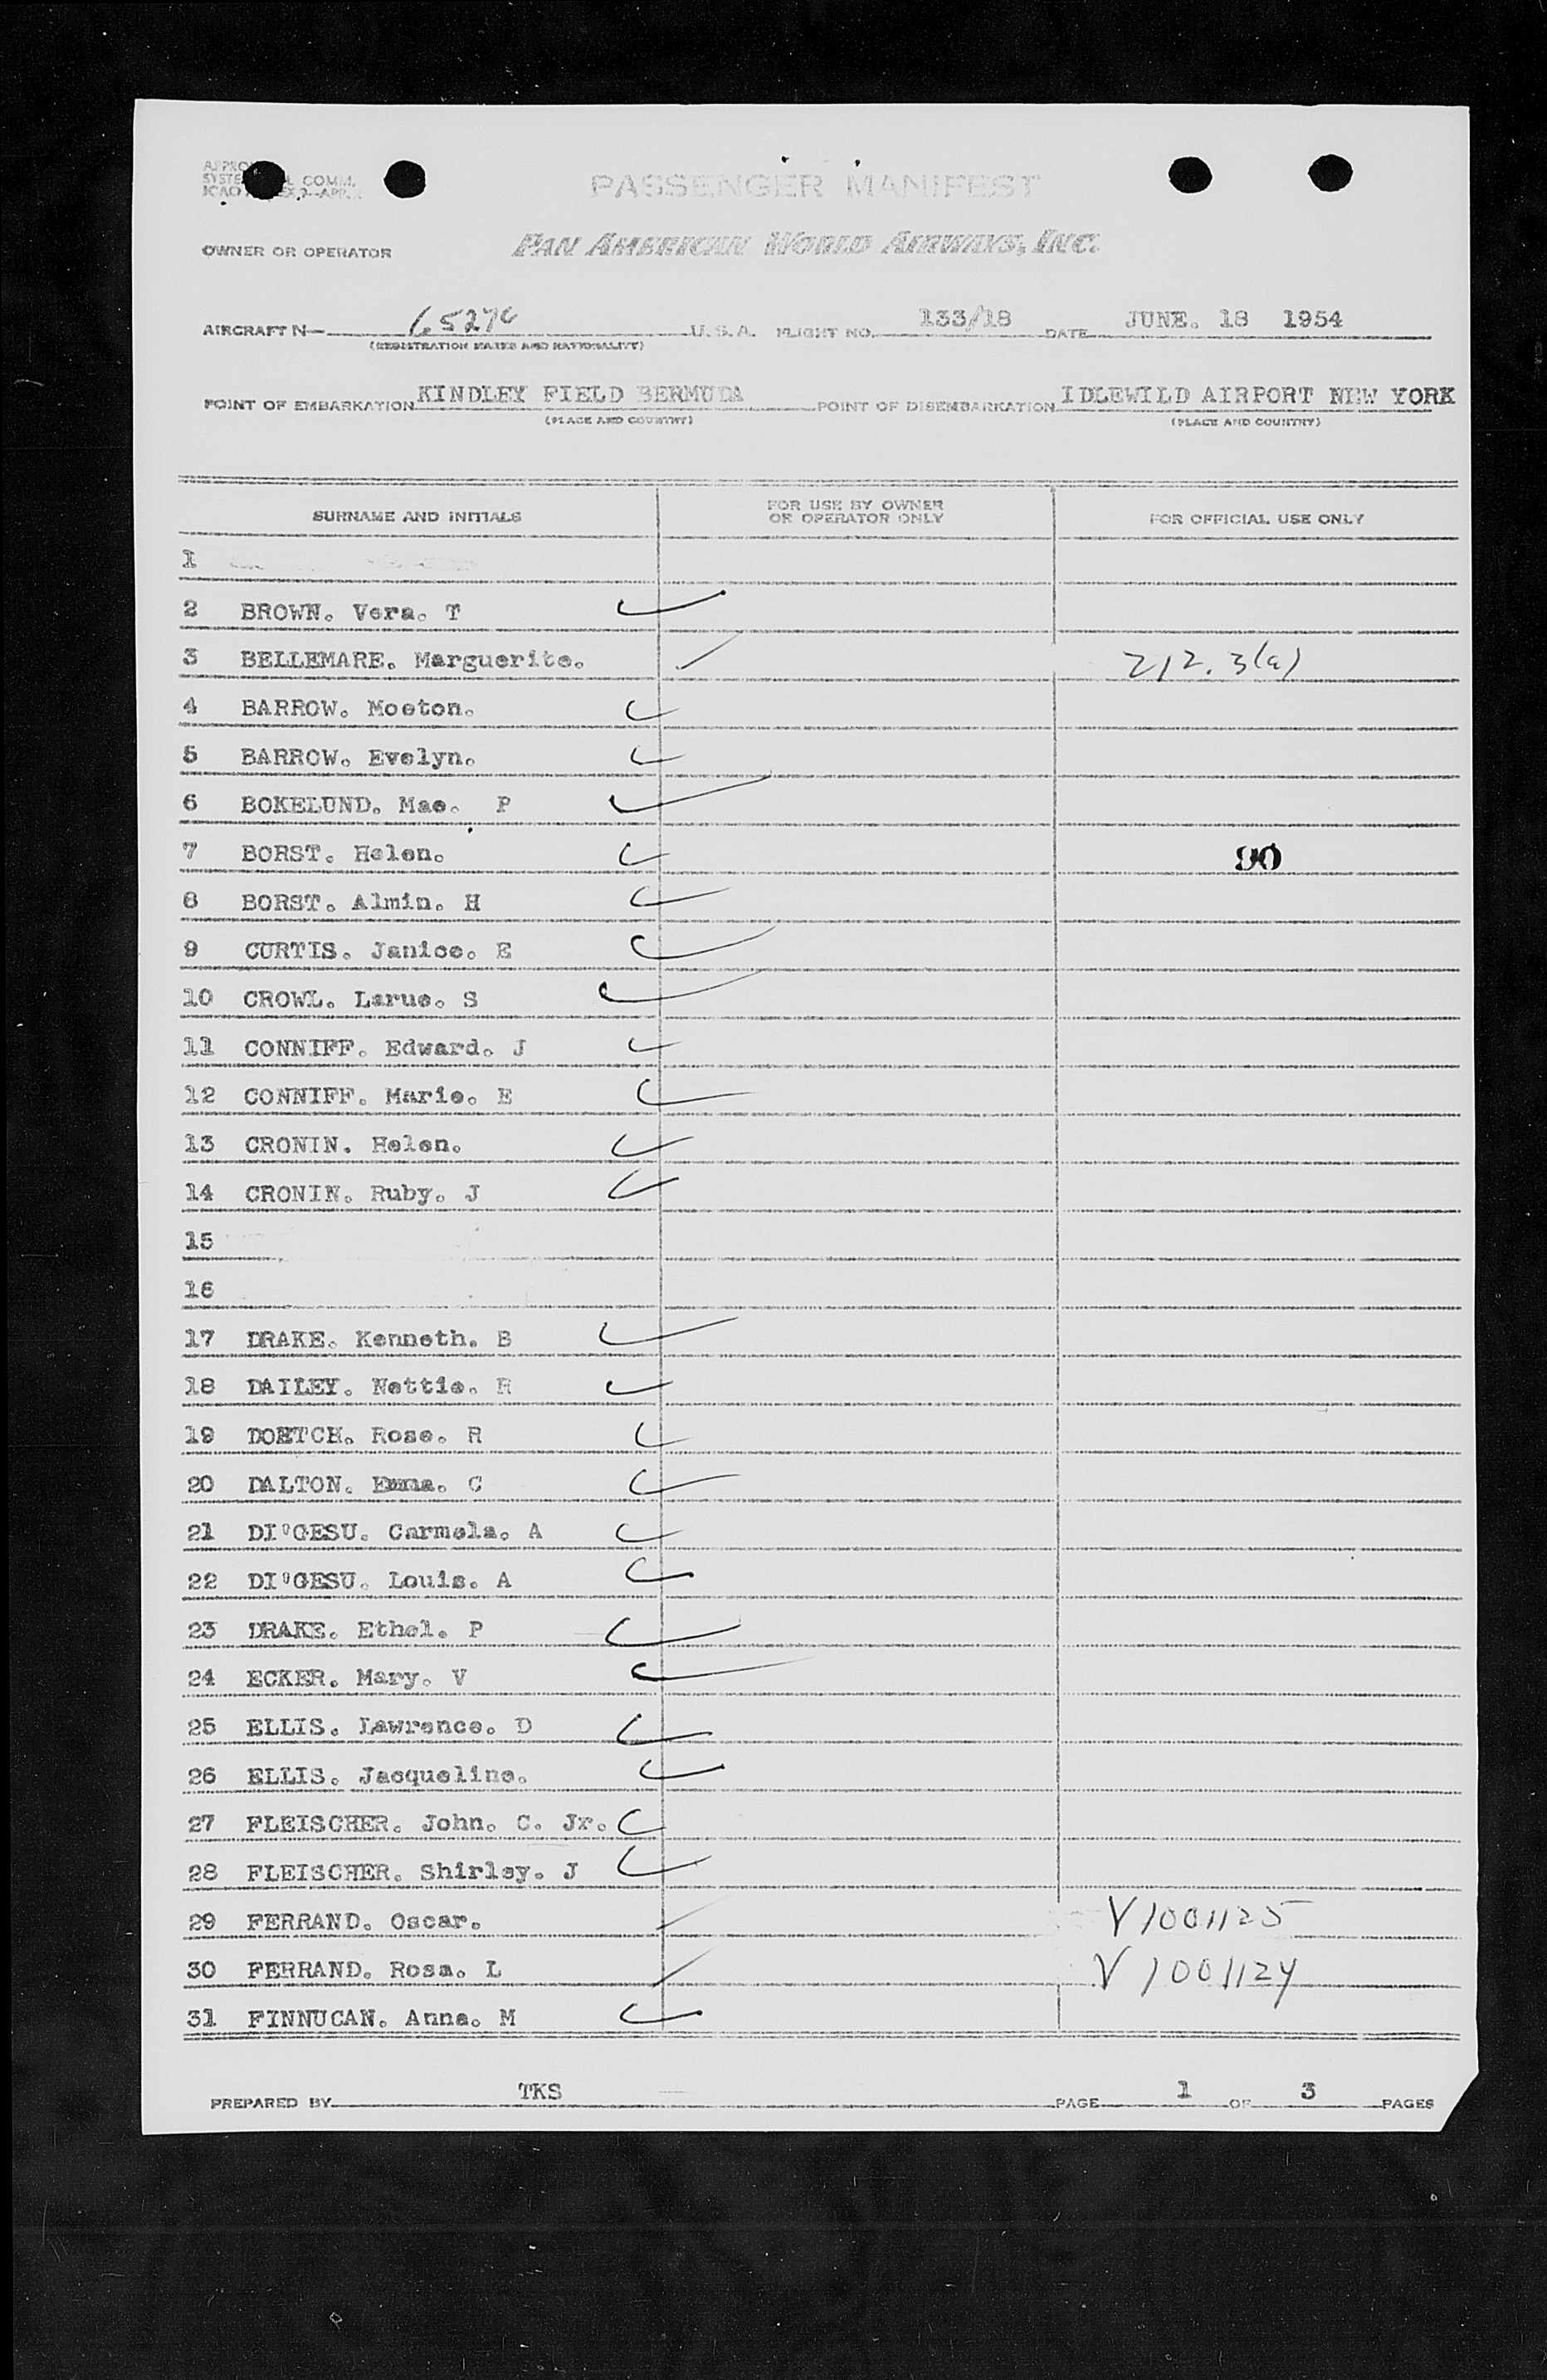 PASSENGER MANIFEST
OWNER OR OPERATOR PAN AMERICAN WORLD AIRWAYS, INC.
AIRCRAFT N U.S.A. FLIGHT NO. 133/18 DATE JUNE. 18 1954
(REGISTRATION MARKS AND NATIONALITY)
POINT OF EMBARKATION KINDLEY FIELD BERMUDA POINT OF DISEMBARKATION IDLEWILD AIRPORT NEW YORK
(PLACE AND COUNTRY) (PLACE AND COUNTRY)
SURNAME AND INITIALS FOR USE BY OWNER OR OPERATOR ONLY FOR OFFICIAL USE ONLY
1
2 BROWN. Vera. T
3 BELLEMARE. Marguerite. 212.3(a)
4 BARROW. Moeton.
5 BARROW. Evelyn.
6 BOKELUND. Mae. P
7 BORST. Helen. 90
8 BORST. Almin. H
9 CURTIS. Janice. E
10 CROWL. Larue. S
11 CONNIFF. Edward. J
12 CONNIFF. Marie. E
13 CRONIN. Helen.
14 CRONIN. Ruby. J
15
16
17 DRAKE. Kenneth. B
18 DAILEY. Nettie. R
19 DOETCH. Rose. R
20 DALTON. Emma. C
21 DI'GESU. Carmela. A
22 DI'GESU. Louis. A
23 DRAKE. Ethel. P
24 ECKER. Mary. V
25 ELLIS. Lawrence. D
26 ELLIS. Jacqueline.
27 FLEISCHER. John. C. Jr.
28 FLEISCHER. Shirley. J
29 FERRAND. Oscar. V1001125
30 FERRAND. Rosa. L V1001124
31 FINNUCAN. Anna. M
PREPARED BY TKS PAGE 1 OF 3 PAGES